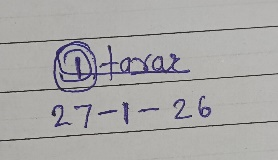 ① taraz
27-1-26